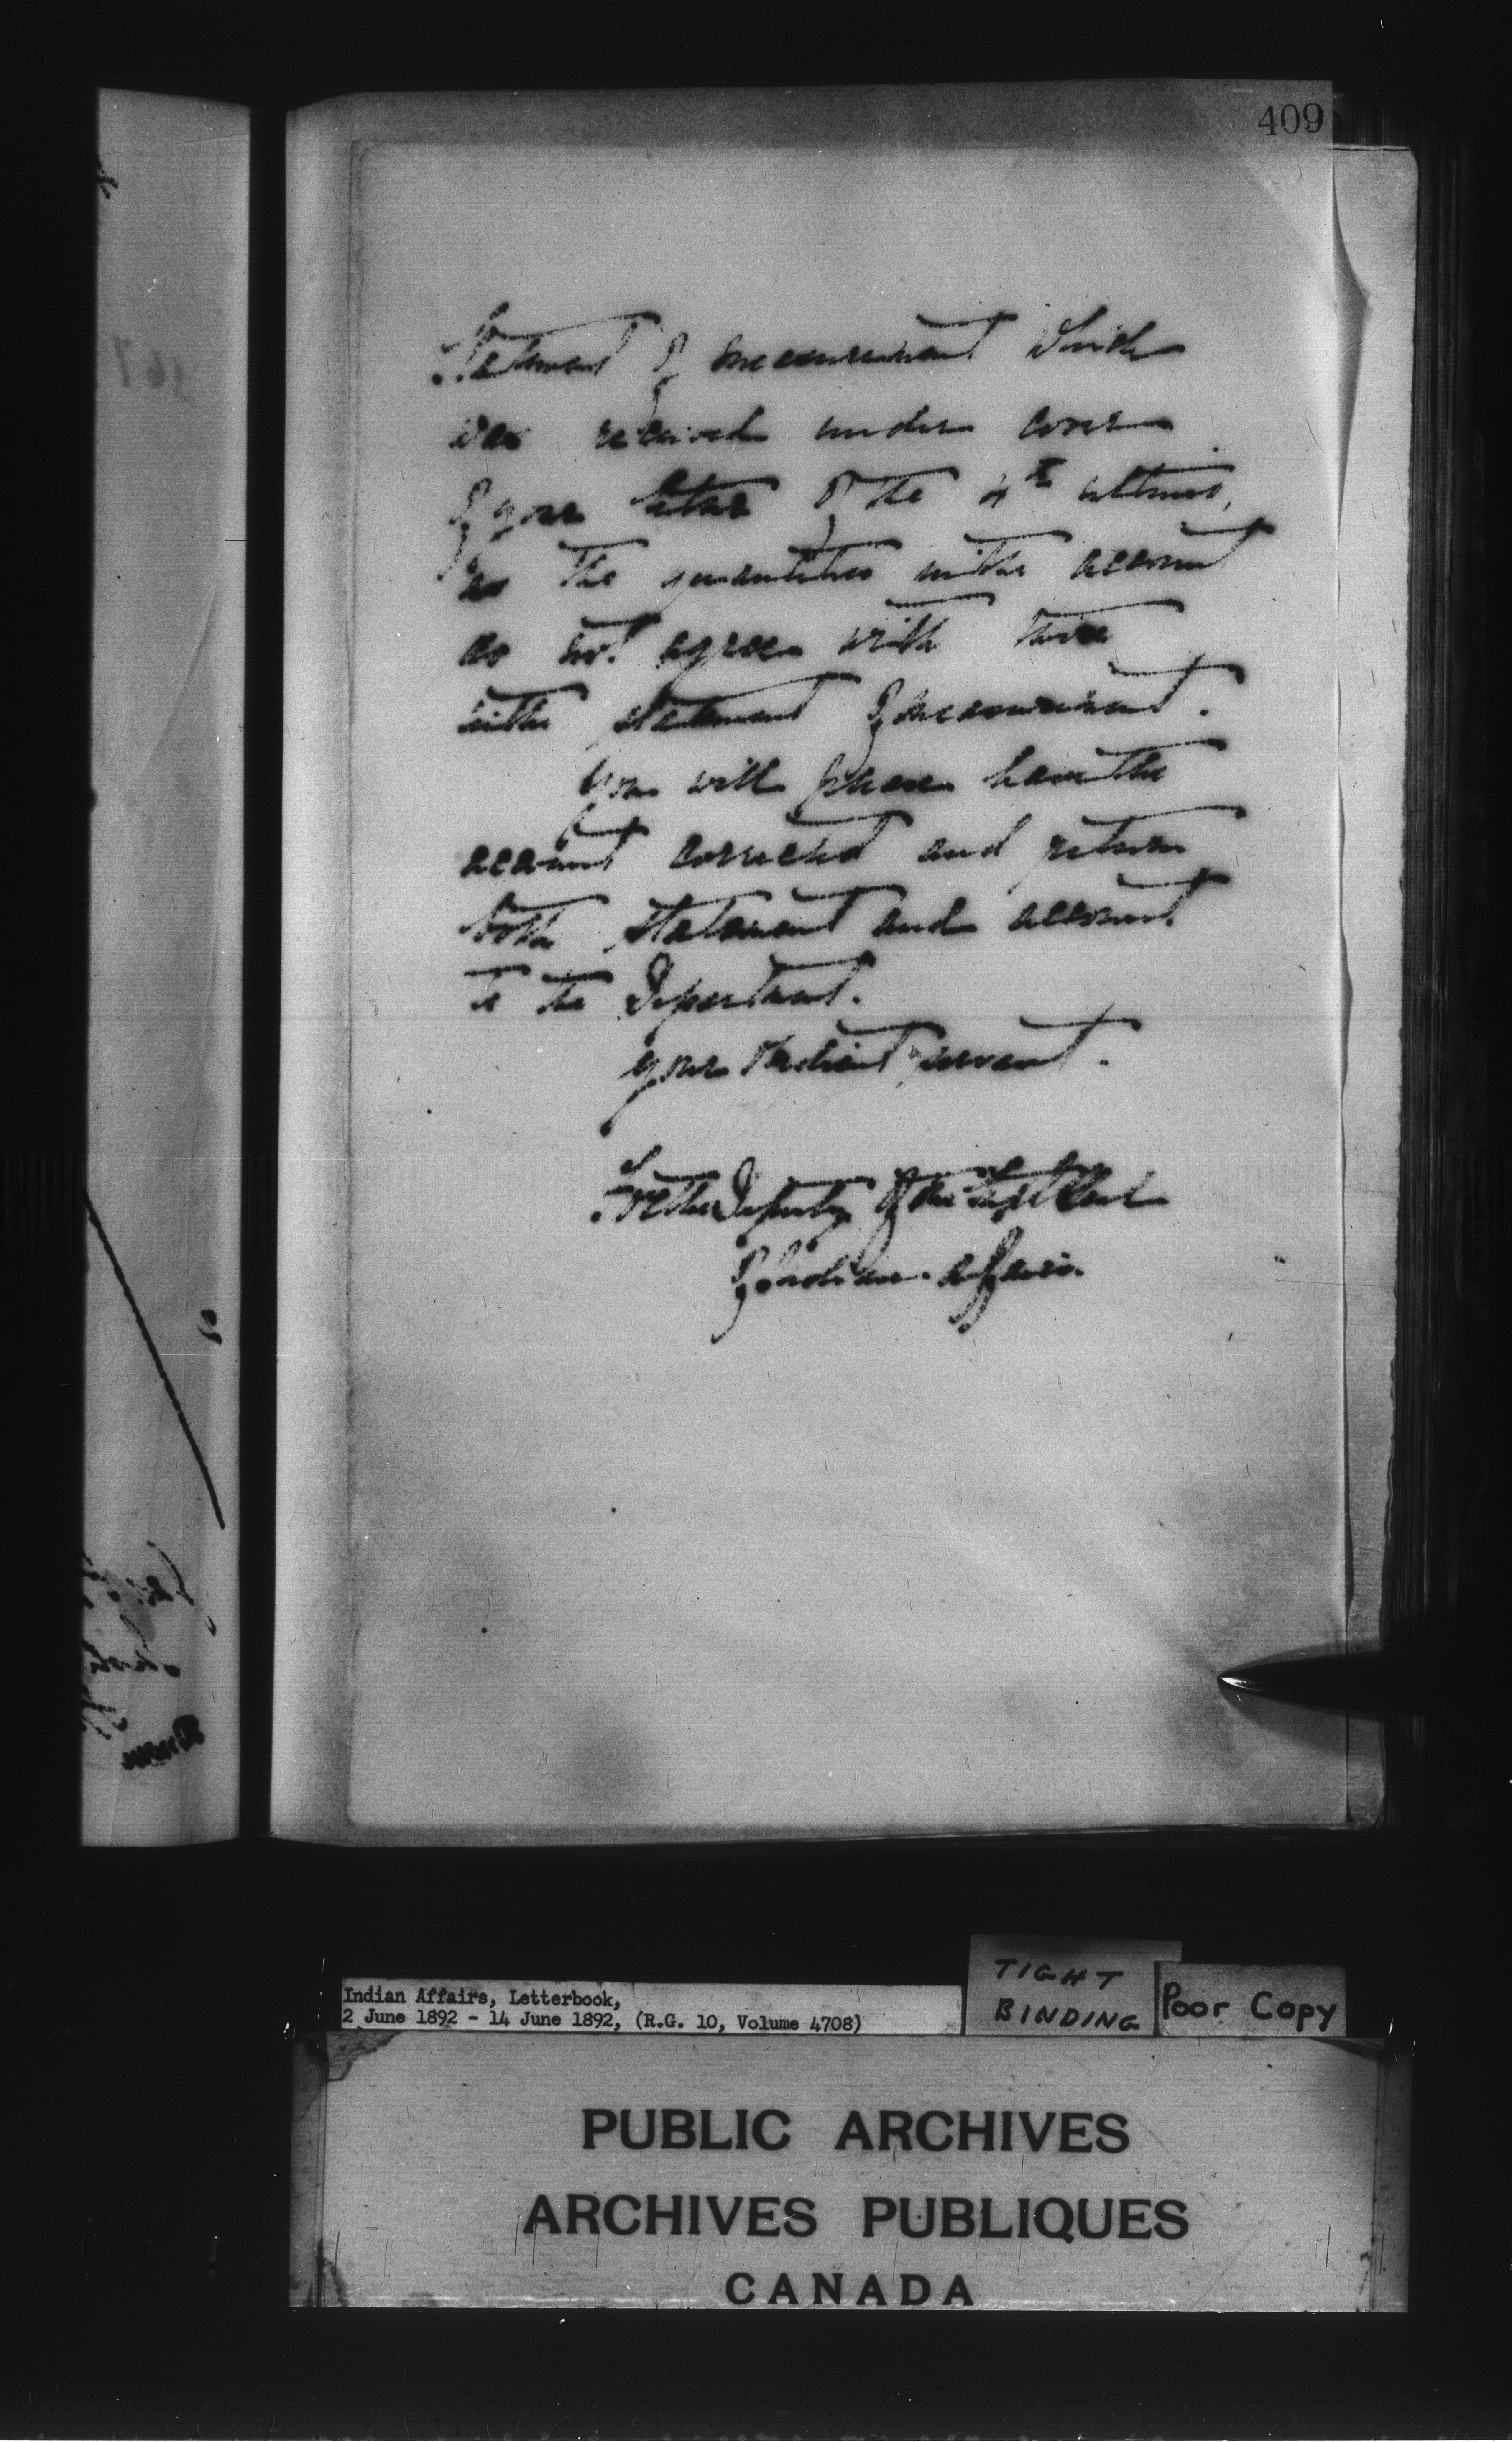 409
Statement of measurement which
was received under cover
of your letter of the 4th ultimo,
as the quantities in the account
do not agree with those
in the statement of measurement.
You will please have the
account corrected and return
both statement and account
to the Department.
Your obedient servant.
For the Deputy of the Supt Genl
of Indian Affairs.
Indian Affairs, Letterbook,
2 June 1892 - 14 June 1892, (R.G. 10, Volume 4708)
TIGHT
BINDING
Poor Copy
PUBLIC ARCHIVES
ARCHIVES PUBLIQUES
CANADA